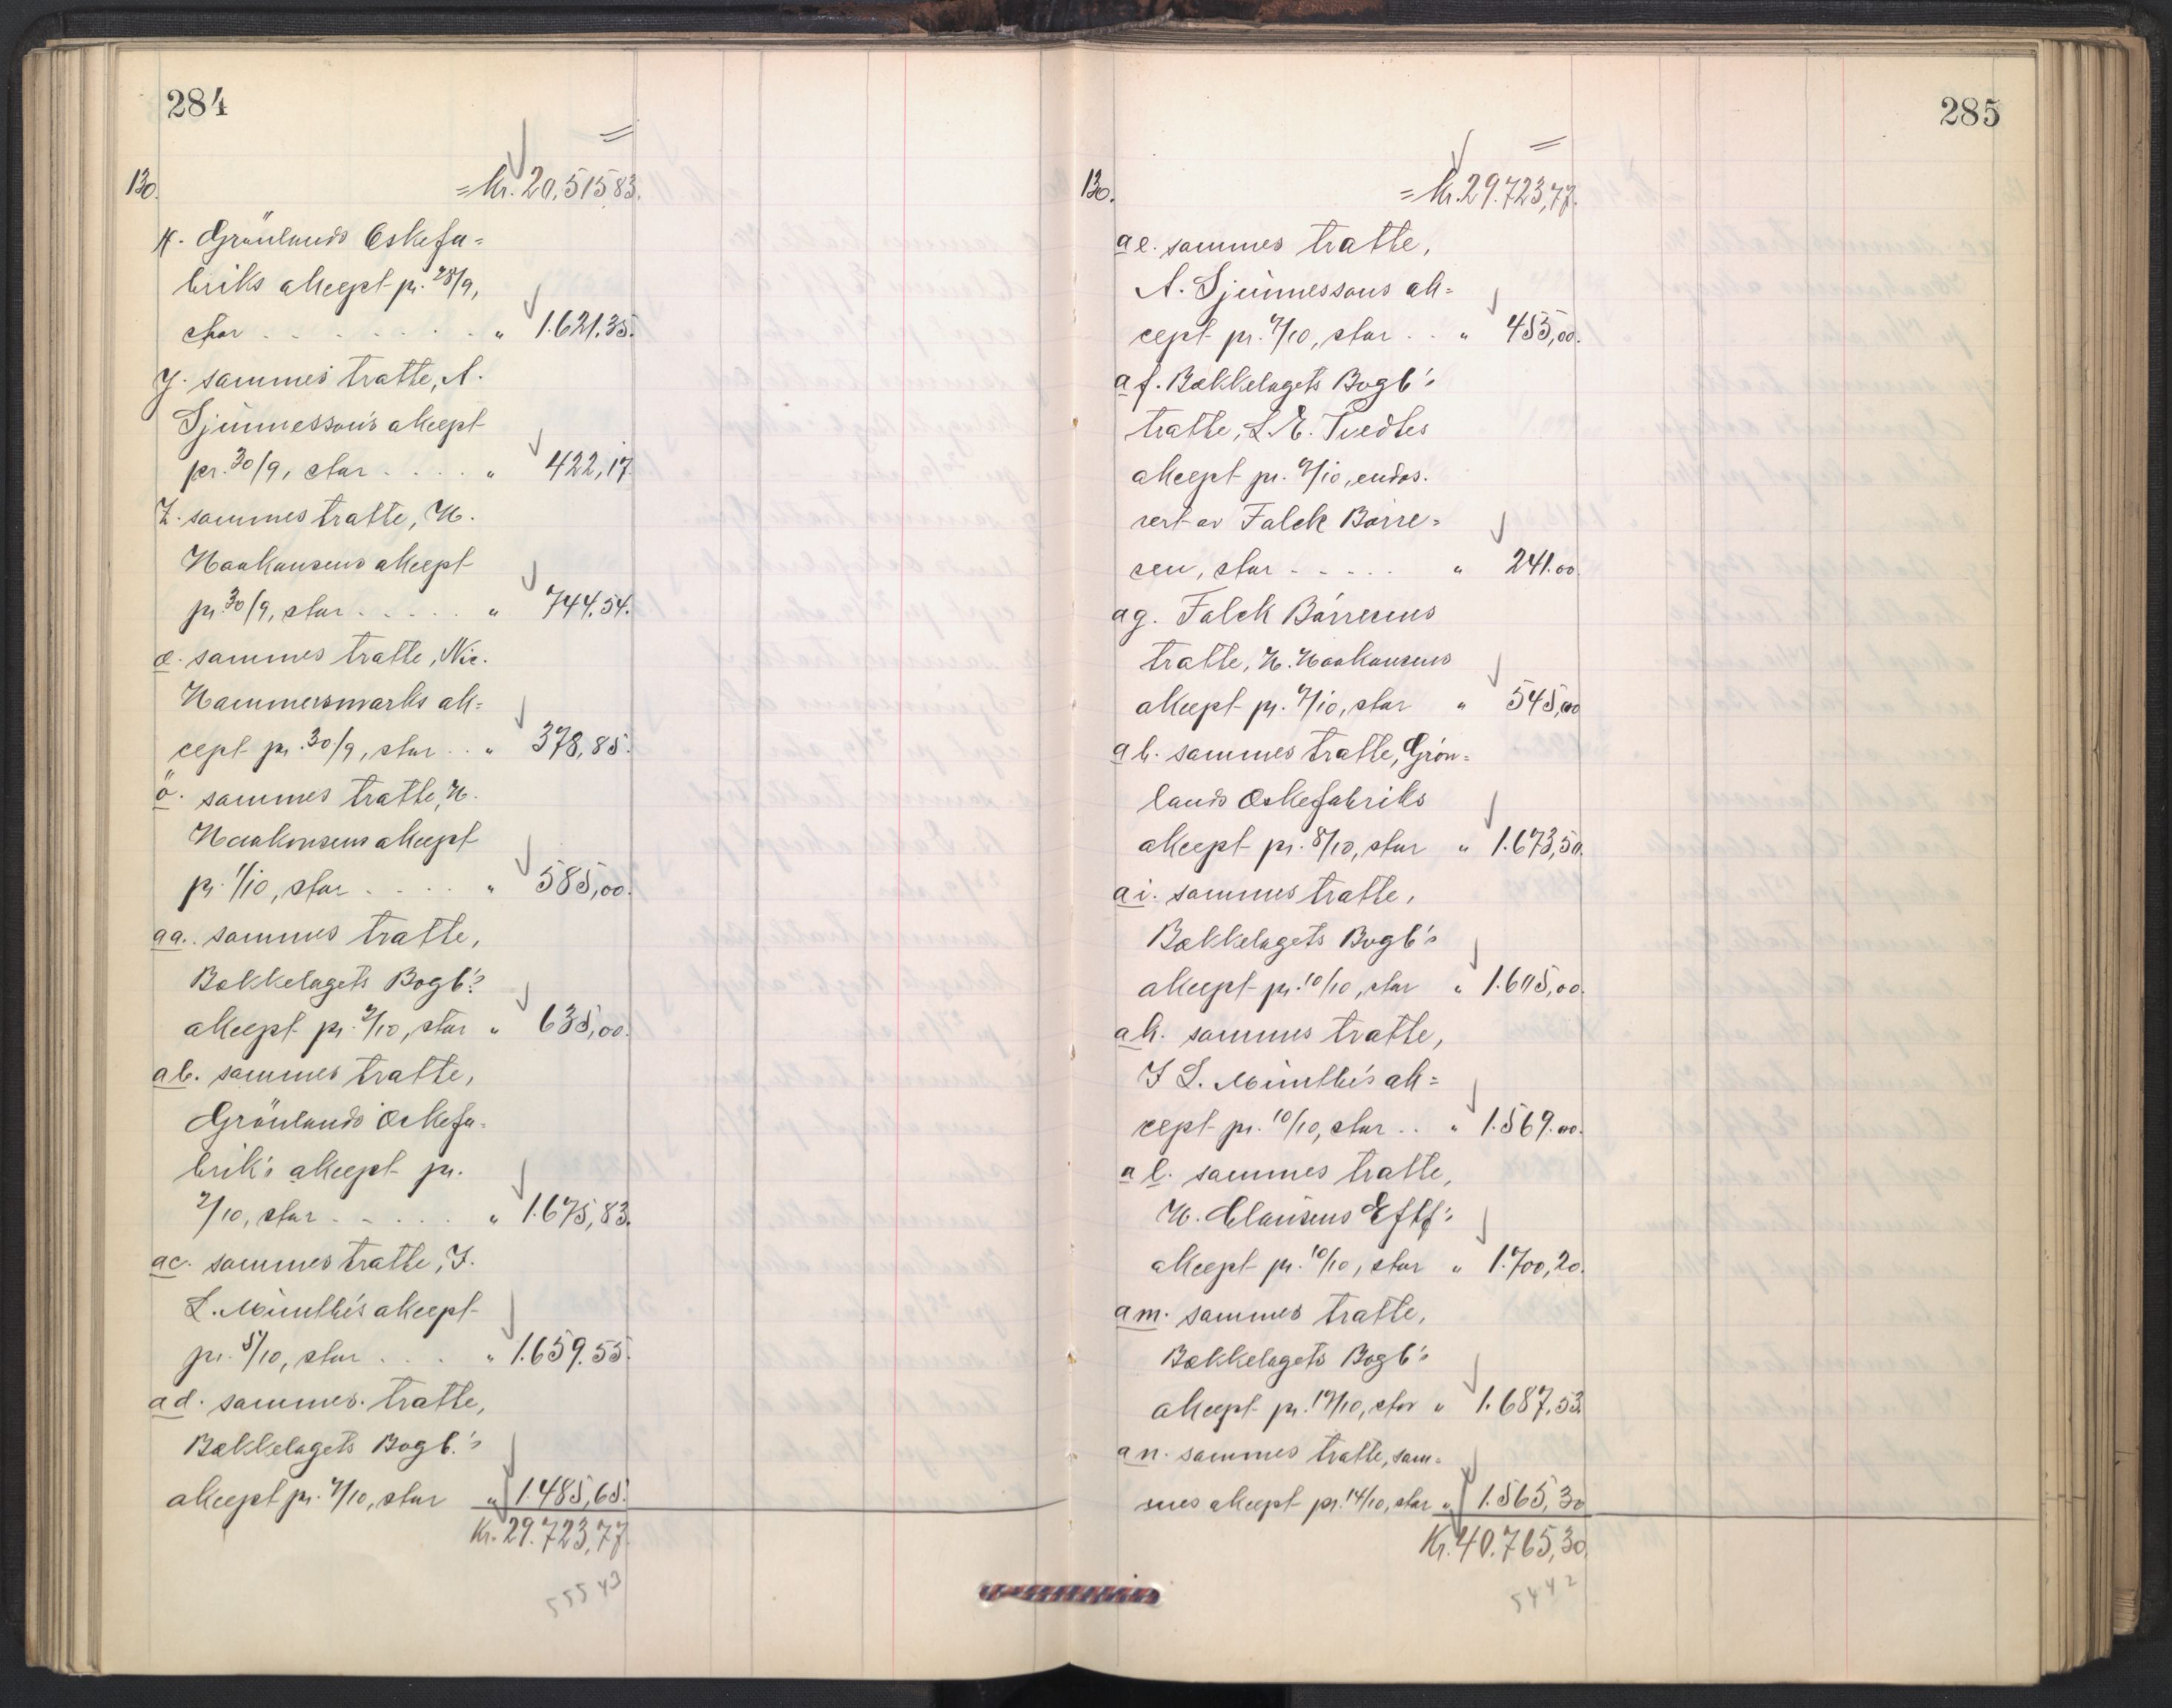 284
130.
= Kr. 20,515,83.
x. Grönlands Eskefa=
briks akcept pr. 28/9,
stor . . . . . . . „ 1.621.35.
y. sammes tratte, A.
Sjünnessons akcept
pr. 30/9, stor . . . . „ 422,17.
z. sammes tratte, H.
Haakonsens akcept
pr. 30/9, stor . . . . . „ 744.54.
æ. sammes tratte, Nic.
Hammersmarks ak=
cept pr. 30/9, stor . . „ 378,85.
ö. sammes tratte, H.
Haakonsens akcept
pr. 1/10, stor . . . . „ 585,00.
aa. sammes tratte,
Bækkelagets Bogb's
akcept pr. 2/10, stor „ 635,00.
ab. sammes tratte,
Grönlands Æskefa=
brik's akcept pr.
2/10, stor . . . . . „ 1.675,83.
ac. sammes tratte, J.
L. Münthe's akcept
pr. 5/10, stor . . . „ 1.659.55.
ad. sammes tratte,
Bækkelagets Bogb.'s
akcept pr. 7/10, stor „ 1.485,65.
Kr. 29.723,77.
55543
285
130.
= Kr. 29.723,77.
ae. sammes tratte,
A. Sjünnessons ak=
cept pr. 7/10, stor . . „ 455,00.
af. Bækkelagets Bogb's
tratte, L. E. Tvedtes
akcept pr. 7/10, endos.
sert av Falck Børre=
sen, stor . . . . . „ 241.00.
ag. Falck Børresens
tratte, H. Haakonsens
akcept pr. 7/10, stor „ 545,00
ah. sammes tratte, Grøn=
lands Æskefabriks
akcept pr. 8/10, stor „ 1.673,50.
ai. sammes tratte,
Bækkelagets Bogb's
akcept pr. 10/10, stor „ 1.605,00.
ak. sammes tratte,
J L. Münthe's ak=
cept pr. 10/10, stor . . „ 1.569.00.
al. sammes tratte,
H. Clausens Eftf's
akcept pr. 10/10, stor „ 1.700,20.
am. sammes tratte,
Bækkelagets Bogb's
akcept pr. 12/10, stor „ 1.687,53.
an. sammes tratte, sam=
mes akcept pr. 14/10, stor „ 1.565,30
Kr. 40.765,30.
5442